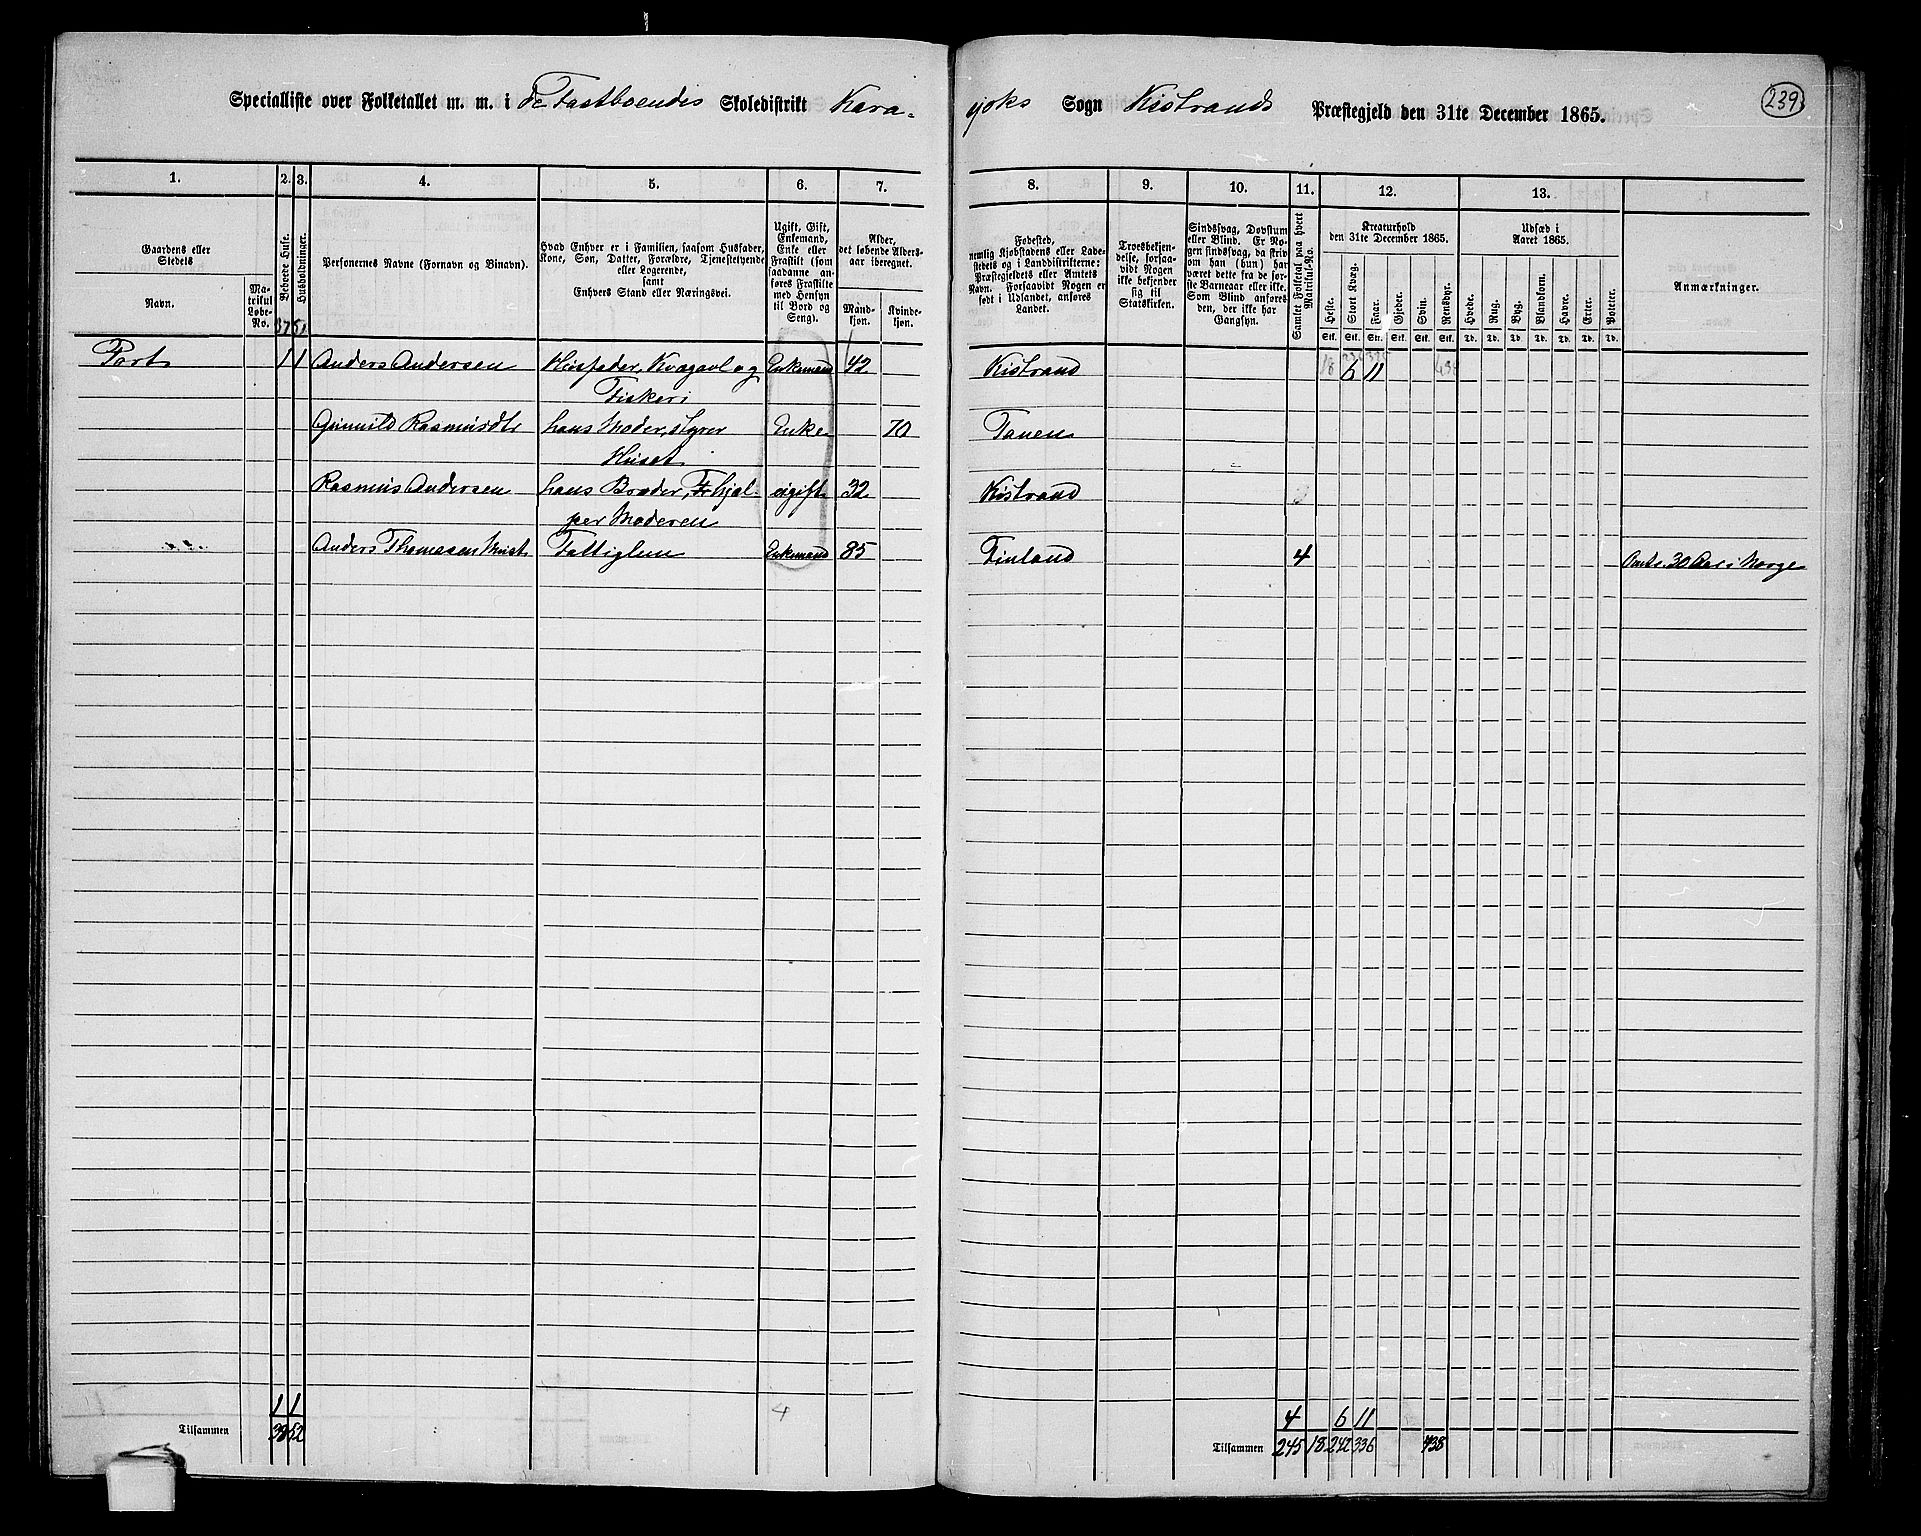 Specialliste over Folketallet m. m. i De Fastboendes Skoledistrikt Kara-
joks Sogn Kistrands Præstegjeld den 31te December 1865.
239
1. 2. 3. 4. 5. 6. 7.
8. 9. 10. 11. 12. 13.
Gaardens eller Stedets
Navn.
Matrikul Løbe-No.
Beboede Huse.
Husholdninger.
Personernes Navne (Fornavn og Binavn).
Hvad Enhver er i Familien, saasom Husfader,
Kone, Søn, Datter, Forældre, Tjenestetyende
eller Logerende,
samt
Enhvers Stand eller Næringsvei.
Ugift, Gift,
Enkemand,
Enke eller
Fraskilt (som
saadanne an-
føres Fraskilte
med Hensyn
til Bord og
Seng).
Alder,
det løbende Alders-
aar iberegnet.
Mand-
kjøn.
Kvinde-
kjøn.
Fødested,
nemlig Kjøbstadens eller Lade-
stedets og i Landdistrikterne:
Præstegjeldets eller Amtets
Navn. Forsaavidt Nogen er
født i Udlandet, anføres
Landet.
Troesbekjen-
delse, forsaa-
vidt Nogen
ikke bekjender
sig til
Statskirken.
Sindssvag, Døvstum
eller Blind. Er No-
gen sindssvag, da skriv
om han (hun) har
været dette fra de før-
ste Barneaar eller ikke.
Som Blind anføres
den, der ikke har
Gangsyn.
Samlet Folketal paa hvert
Matrikul-No.
Kreaturhold
den 31te December 1865.
Heste.
Stort Kvæg.
Faar.
Gjeder.
Sviin.
Rensdyr.
Stk. Stk. Stk. Stk. Stk. Stk.
Udsæd i
Aaret 1865.
Hvede.
Rug.
Byg.
Blandkorn.
Havre.
Erter.
Poteter.
Td. Td. Td. Td. Td. Td. Td.
Anmærkninger.
37 51
Port 1 1 Anders Andersen Husfader, Kvægavl og Enkemand 42 Kistrand 6 11
Fiskeri
Gunnild Rasmusdtr hans Moder, styrer Enke 70 Tanen
Huset
Rasmus Andersen hans Broder, hjæl- ugift 32 Kistrand
per Moderen
Anders Thomesen Fattiglem Enkemand 85 Finland 4 30 Aar i Norge
1 1 4 4 6 11
Tilsammen 38 52 Tilsammen 245 18 242 336 438